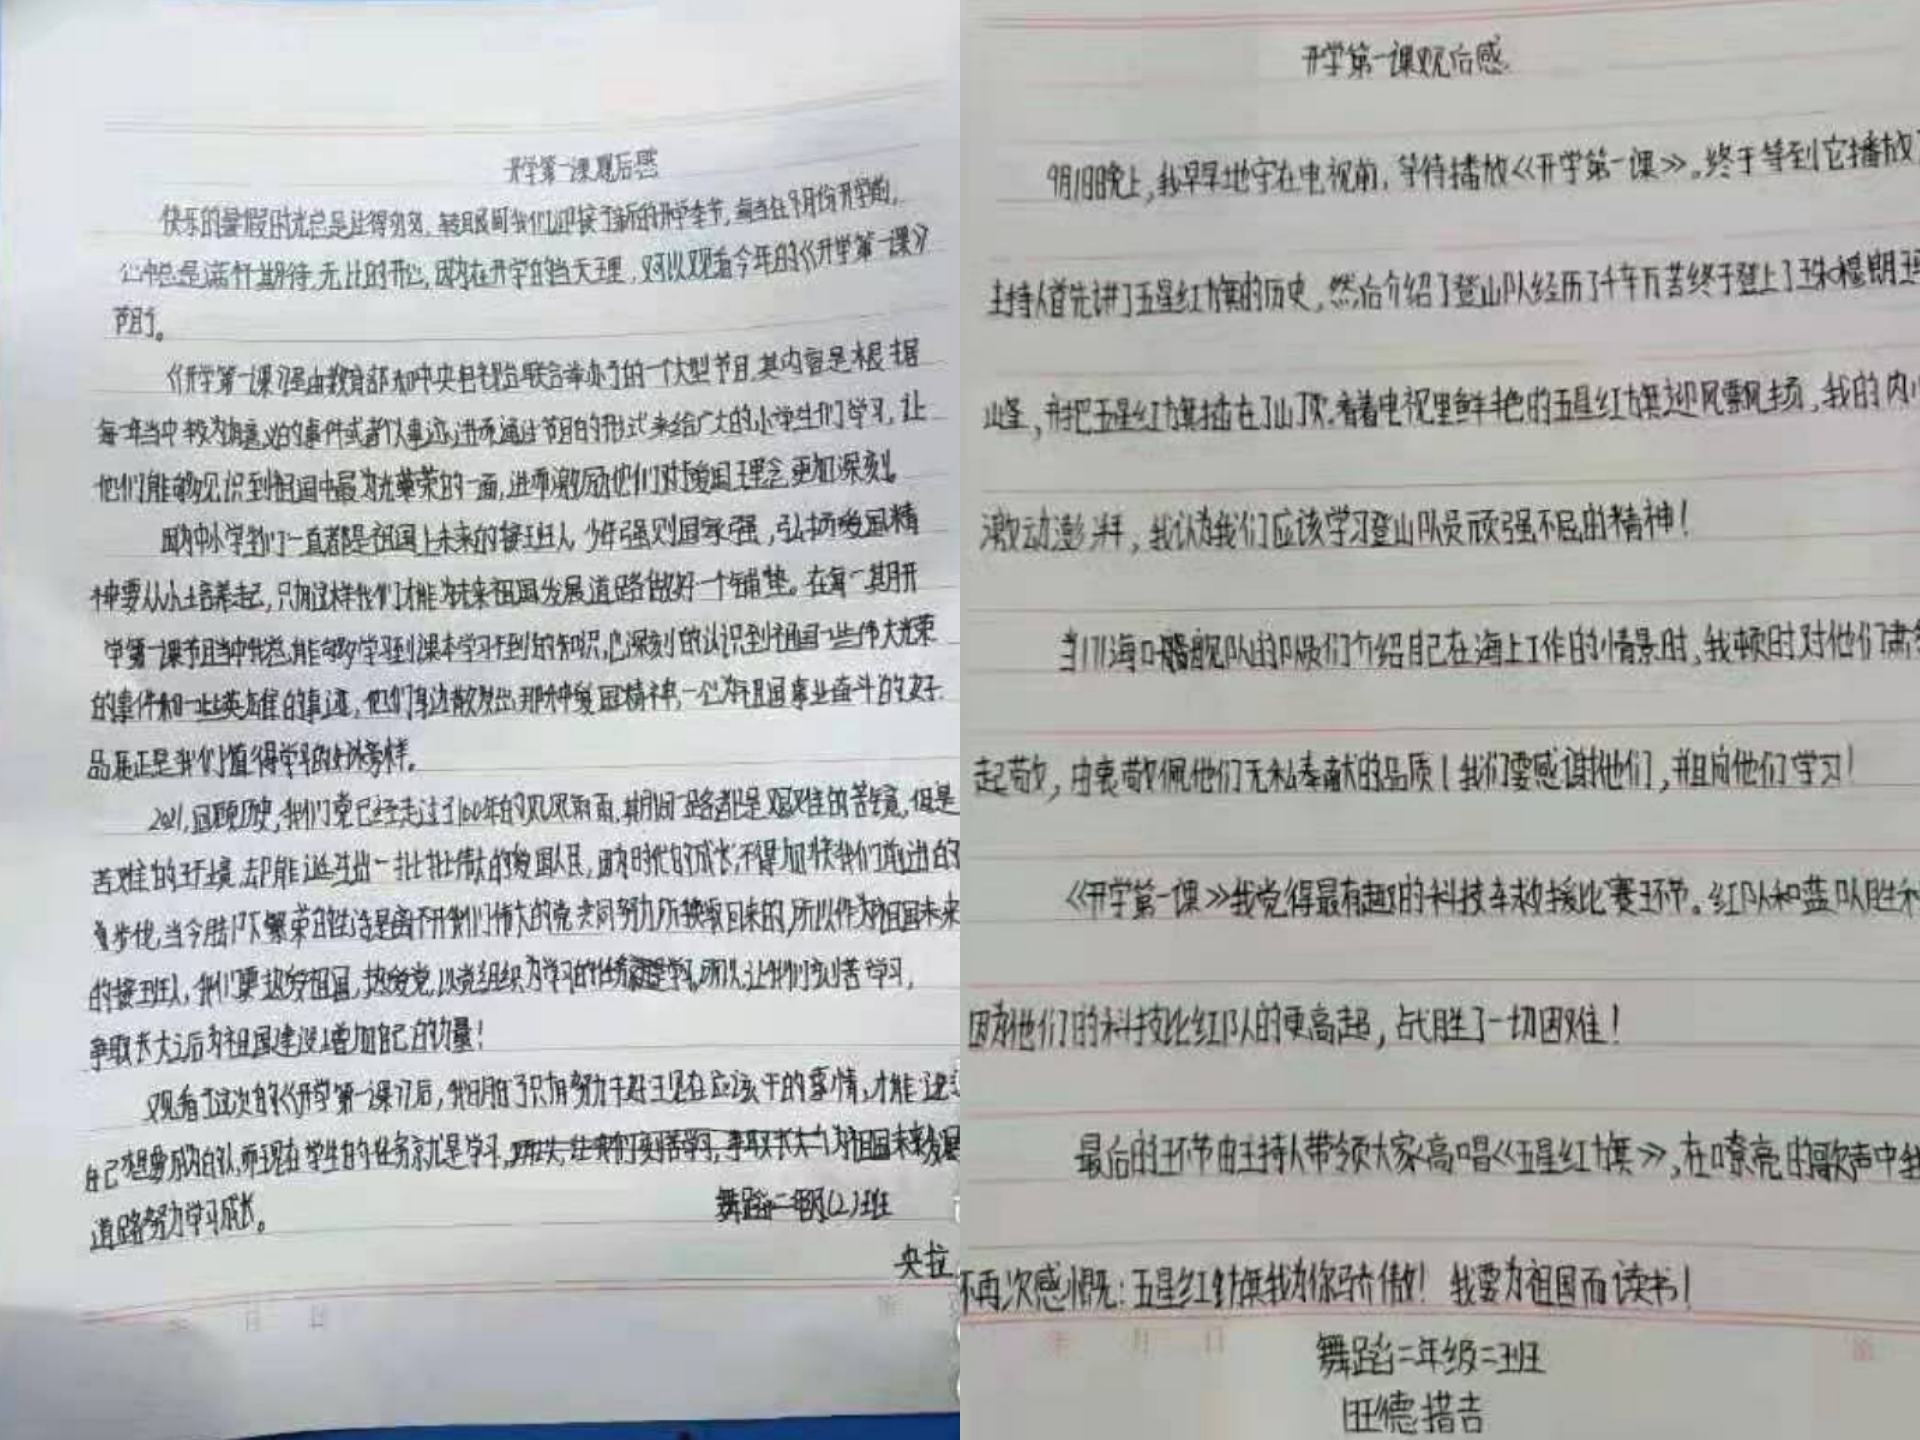 开学第一课观后感
快乐的暑假时光总是过得匆匆，转眼间我们迎接了新的开学季节，每当在9月份开学时，
心中总是满怀期待，无比的开心，因为在开学的当天里，又可以观看今年的《开学第一课》
节目了。
《开学第一课》是由教育部和中央电视台联合举办的一个大型节目，其内容是根据
每一年当中较为有意义的事件或者以事迹，进而通过节目的形式来给广大的小学生们学习，让
他们能够见识到祖国中最为光荣的一面，进而激励他们对爱国理念更加深刻。
因为中小学生们一直都是祖国上未来的接班人，少年强则国家强，弘扬爱国精
神要从小培养起，只有这样我们才能为未来祖国发展道路做好一个铺垫。在每一期开
学第一课节目当中我总能够学习到课本学习不到的知识，也深刻的认识到祖国一些伟大光荣
的事件和一些英雄的事迹，他们身边散发出那种爱国精神，一心为祖国事业奋斗的好
品质正是我们值得学习的好榜样。
2021，回顾历史，我们党已经走过了100年的风风雨雨，其期间一路都是艰难的苦境，但是
苦难的环境，却能诞生出一批批伟大的爱国人民，因为时代的成长，不得加快我们前进的
步伐，当今陆下繁荣的生活是离不开我们伟大的党共同努力所换取回来的，所以作为祖国未来
的接班人，我们要热爱祖国，热爱党，以党组织为学习的任务学习，所以让我们刻苦学习，
争取长大之后为祖国建设增加自己的力量！
观看了这次的《开学第一课》后，我明白了只有努力干好现在应该干的事情，才能
自己想要成为的人，而现在学生的任务就是学习，所以，让我们刻苦学习，争取长大为祖国未来发展
道路努力学习成长。
舞蹈二年级（2）班
央拉
开学第一课观后感
9月1日晚上，我早早地守在电视前，等待播放《开学第一课》。终于等到它播放
主持人首先讲了五星红旗的历史，然后介绍了登山队经历了千辛万苦终于登上了珠穆朗玛
峰，并把五星红旗插在了山顶。看着电视里鲜艳的五星红旗迎风飘扬，我的内心
激动澎湃，我认为我们应该学习登山队员顽强不屈的精神！
当171海口舰舰队的队员们介绍自己在海上工作的情景时，我顿时对他们肃然
起敬，由衷敬佩他们无私奉献的品质！我们要感谢他们，并且向他们学习！
《开学第一课》我觉得最有趣的科技车救援比赛环节。红队和蓝队胜利
因为他们的科技比红队的更高超，战胜了一切困难！
最后的环节由主持人带领大家高唱《五星红旗》，在嘹亮的歌声中我
不再次感慨：五星红旗我为你骄傲！我要为祖国而读书！
舞蹈二年级二班
旺德措吉